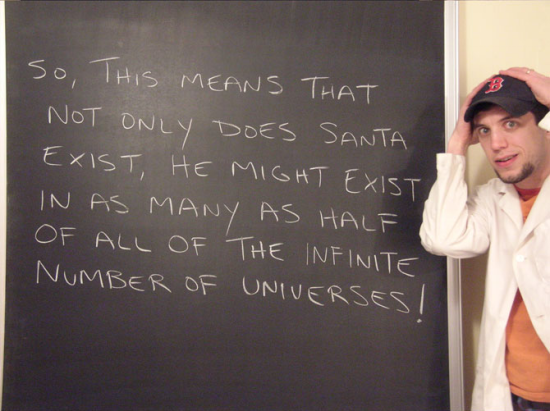 SO, THIS MEANS THAT
NOT ONLY DOES SANTA
EXIST, HE MIGHT EXIST
IN AS MANY AS HALF
OF ALL OF THE INFINITE
NUMBER OF UNIVERSES!
B